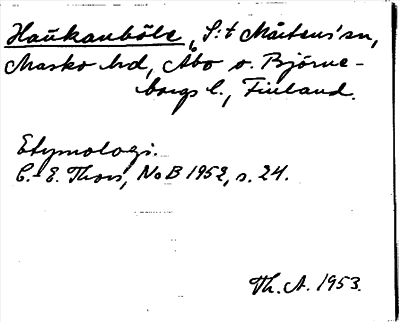 Haukanböle, S:t Mårtens sn,
Masko hd, Åbo o. Björne-
borgs l., Finland.
Etymologi.
C.-E. Thors, NoB 1952, s. 24.
Th. A. 1953.